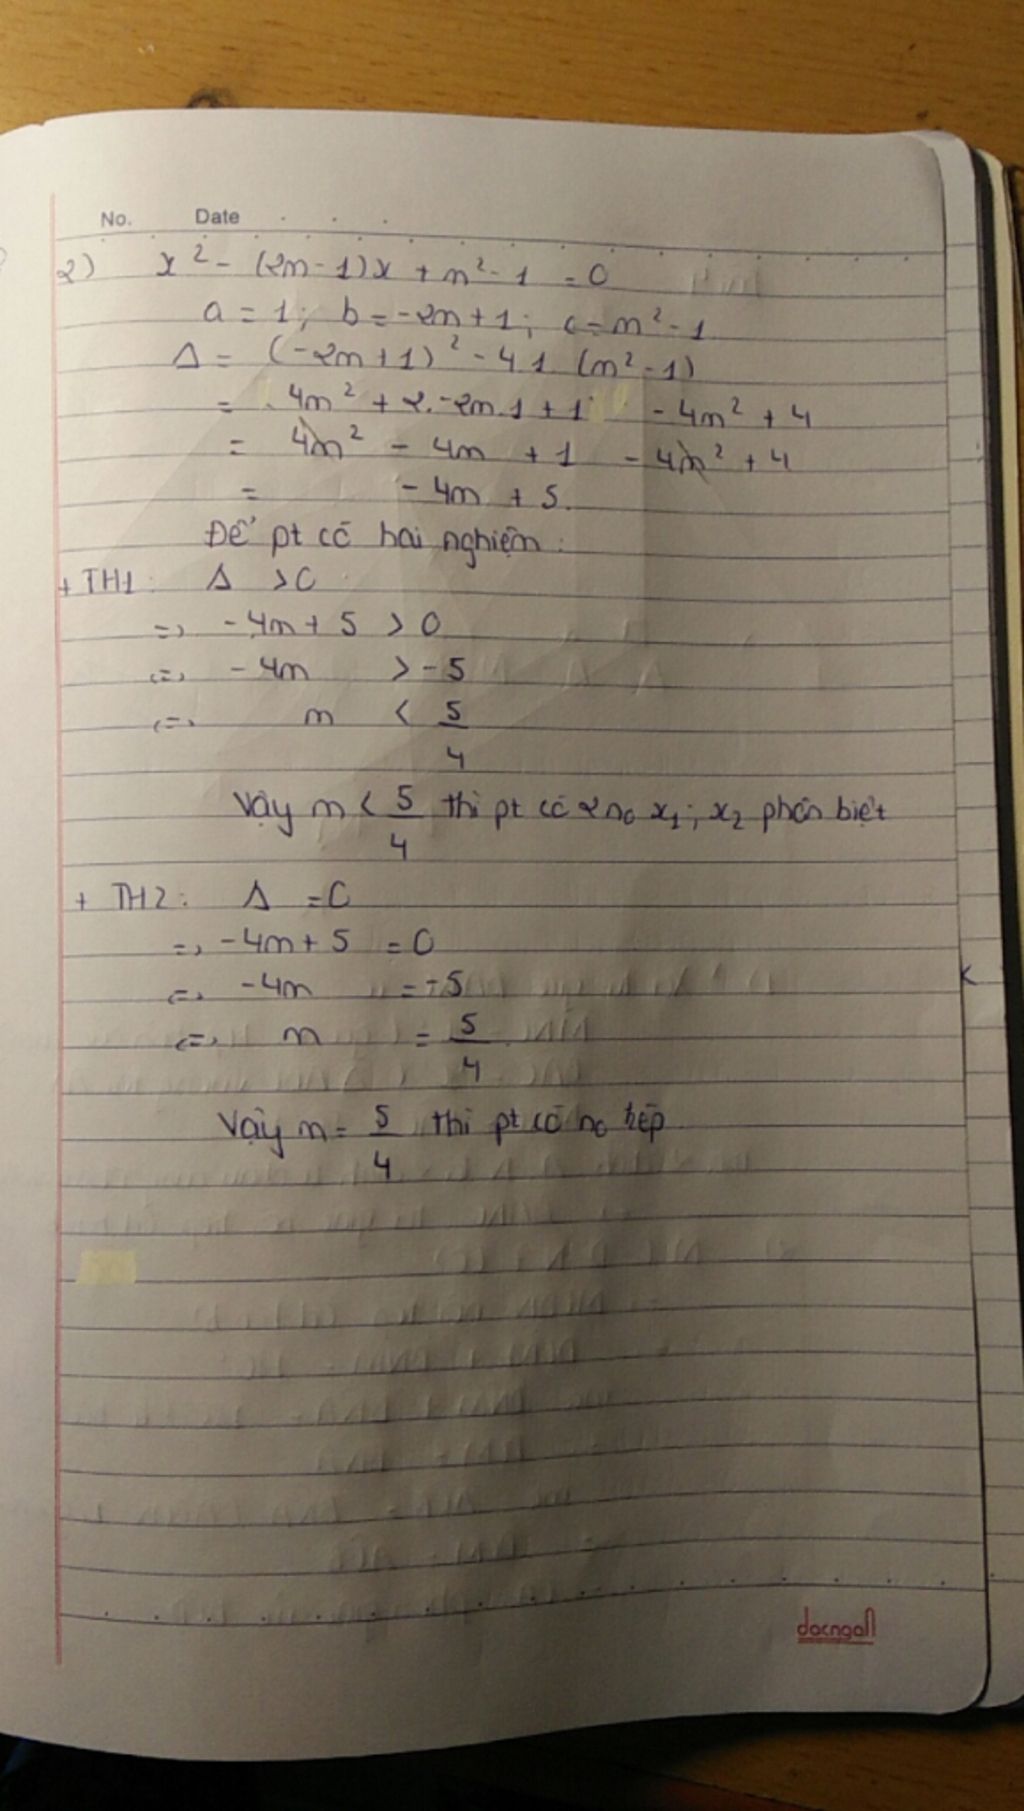 No. Date
2) x² - (2m-1)x + m² - 1 = 0
a = 1; b = -2m+1; c = m² - 1
Δ = (-2m+1)² - 4.1 (m² - 1)
= 4m² + 2.-2m.1 + 1 - 4m² + 4
= 4m² - 4m + 1 - 4m² + 4
= - 4m + 5.
Để pt có hai nghiệm:
+ TH1: Δ > 0
=> -4m + 5 > 0
<=> -4m > -5
<=> m < 5/4
Vậy m < 5/4 thì pt có 2 no x₁; x₂ phân biệt
+ TH2: Δ = 0
=> -4m + 5 = 0
<=> -4m = -5
<=> m = 5/4
Vậy m = 5/4 thì pt có no kép
docngan